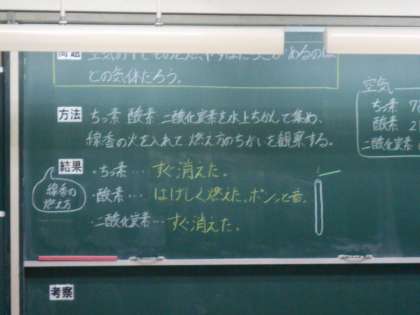 問題
どの気体だろう。
方法
ちっ素 酸素 二酸化炭素を水上ちかんで集め、
線香の火を入れて 燃え方のちがいを観察する。
結果
線香の
燃え方
・ちっ素… すぐ消えた。
・酸素… はげしく燃えた。ボンッと音。
・二酸化炭素… すぐ消えた。
空気
ちっ素 7
酸素 2
二酸化炭素
考察